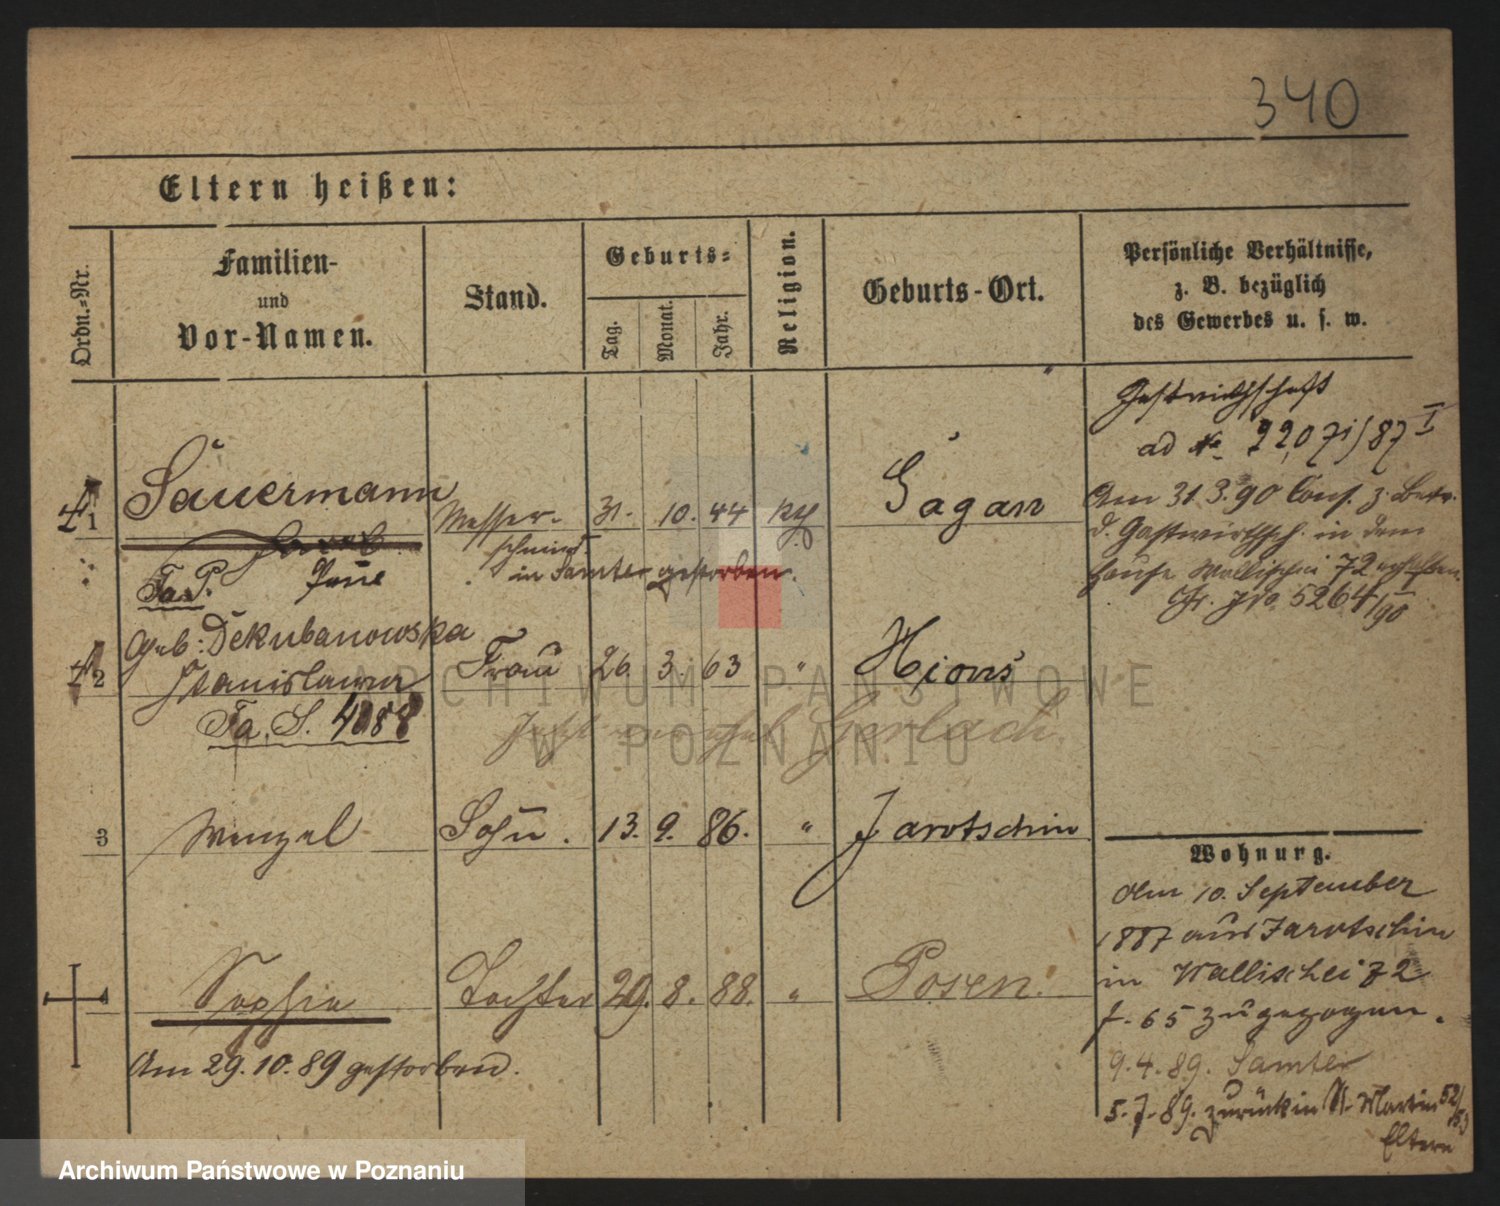 340
Eltern heißen:
Ordn.-Nr.
Familien-
und
Vor-Namen.
Stand.
Geburts-
Tag.
Monat.
Jahr.
Religion.
Geburts-Ort.
Persönliche Verhältnisse,
z. B. bezüglich
des Gewerbes u. s. w.
Gastwirthschaft
ad No 2207i/87 I
1 Sauermann Messer- 31. 10. 44 Sagan
schmied
in Samter gestorben.
Fa. P.
Am 31.3.90 Cons. z. Betr.
d. Gastwirthsch. in dem
Hause Wallischei 72
5264/90 I
2 geb: Dekubanowska Frau 26. 3. 63 " Xions
Stanislawa
Fa. S. 4088
Jetzt Gerlach.
3 Wenzel Sohn. 13. 9. 86. " Jarotschin
Sophie Tochter 29. 8. 88. " Posen.
Am 29.10.89 gestorben.
Wohnung.
Am 10. September
1887 aus Jarotschin
in Wallischei 72
f. 65 zugezogen.
9.4.89. Samter
5.7.89. zurück in St. Martin 52/53
Eltern
ARCHIWUM PAŃSTWOWE
W POZNANIU
Archiwum Państwowe w Poznaniu